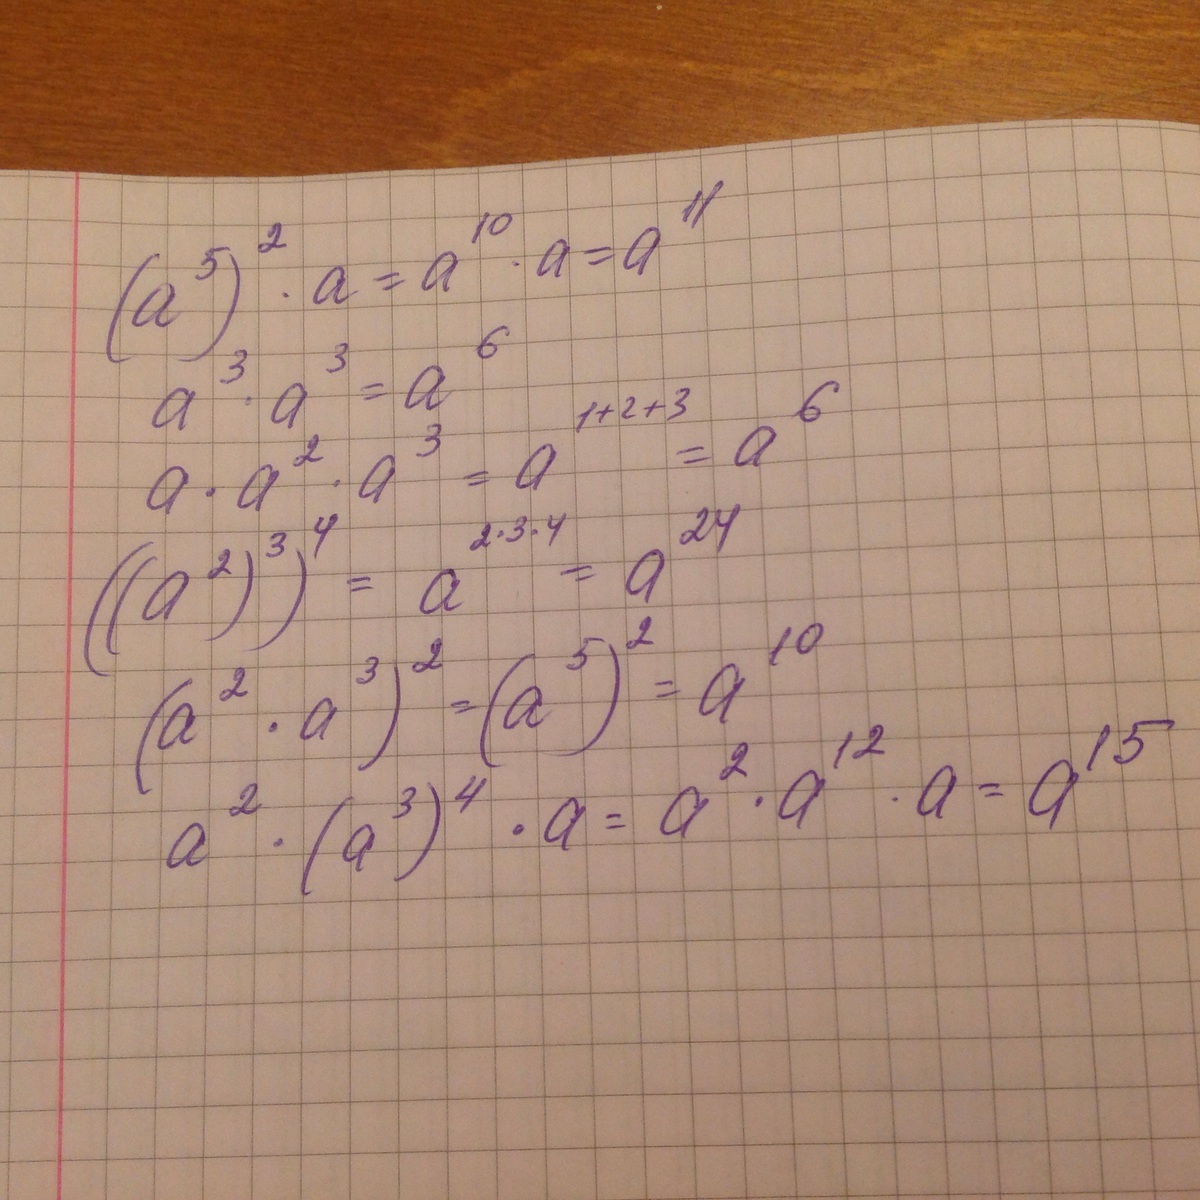 (a⁵)² · a = a¹⁰ · a = a¹¹
a³ · a³ = a⁶
a · a² · a³ = a¹⁺²⁺³ = a⁶
((a²)³)⁴ = a²˙³˙⁴ = a²⁴
(a² · a³)² = (a⁵)² = a¹⁰
a² · (a³)⁴ · a = a² · a¹² · a = a¹⁵